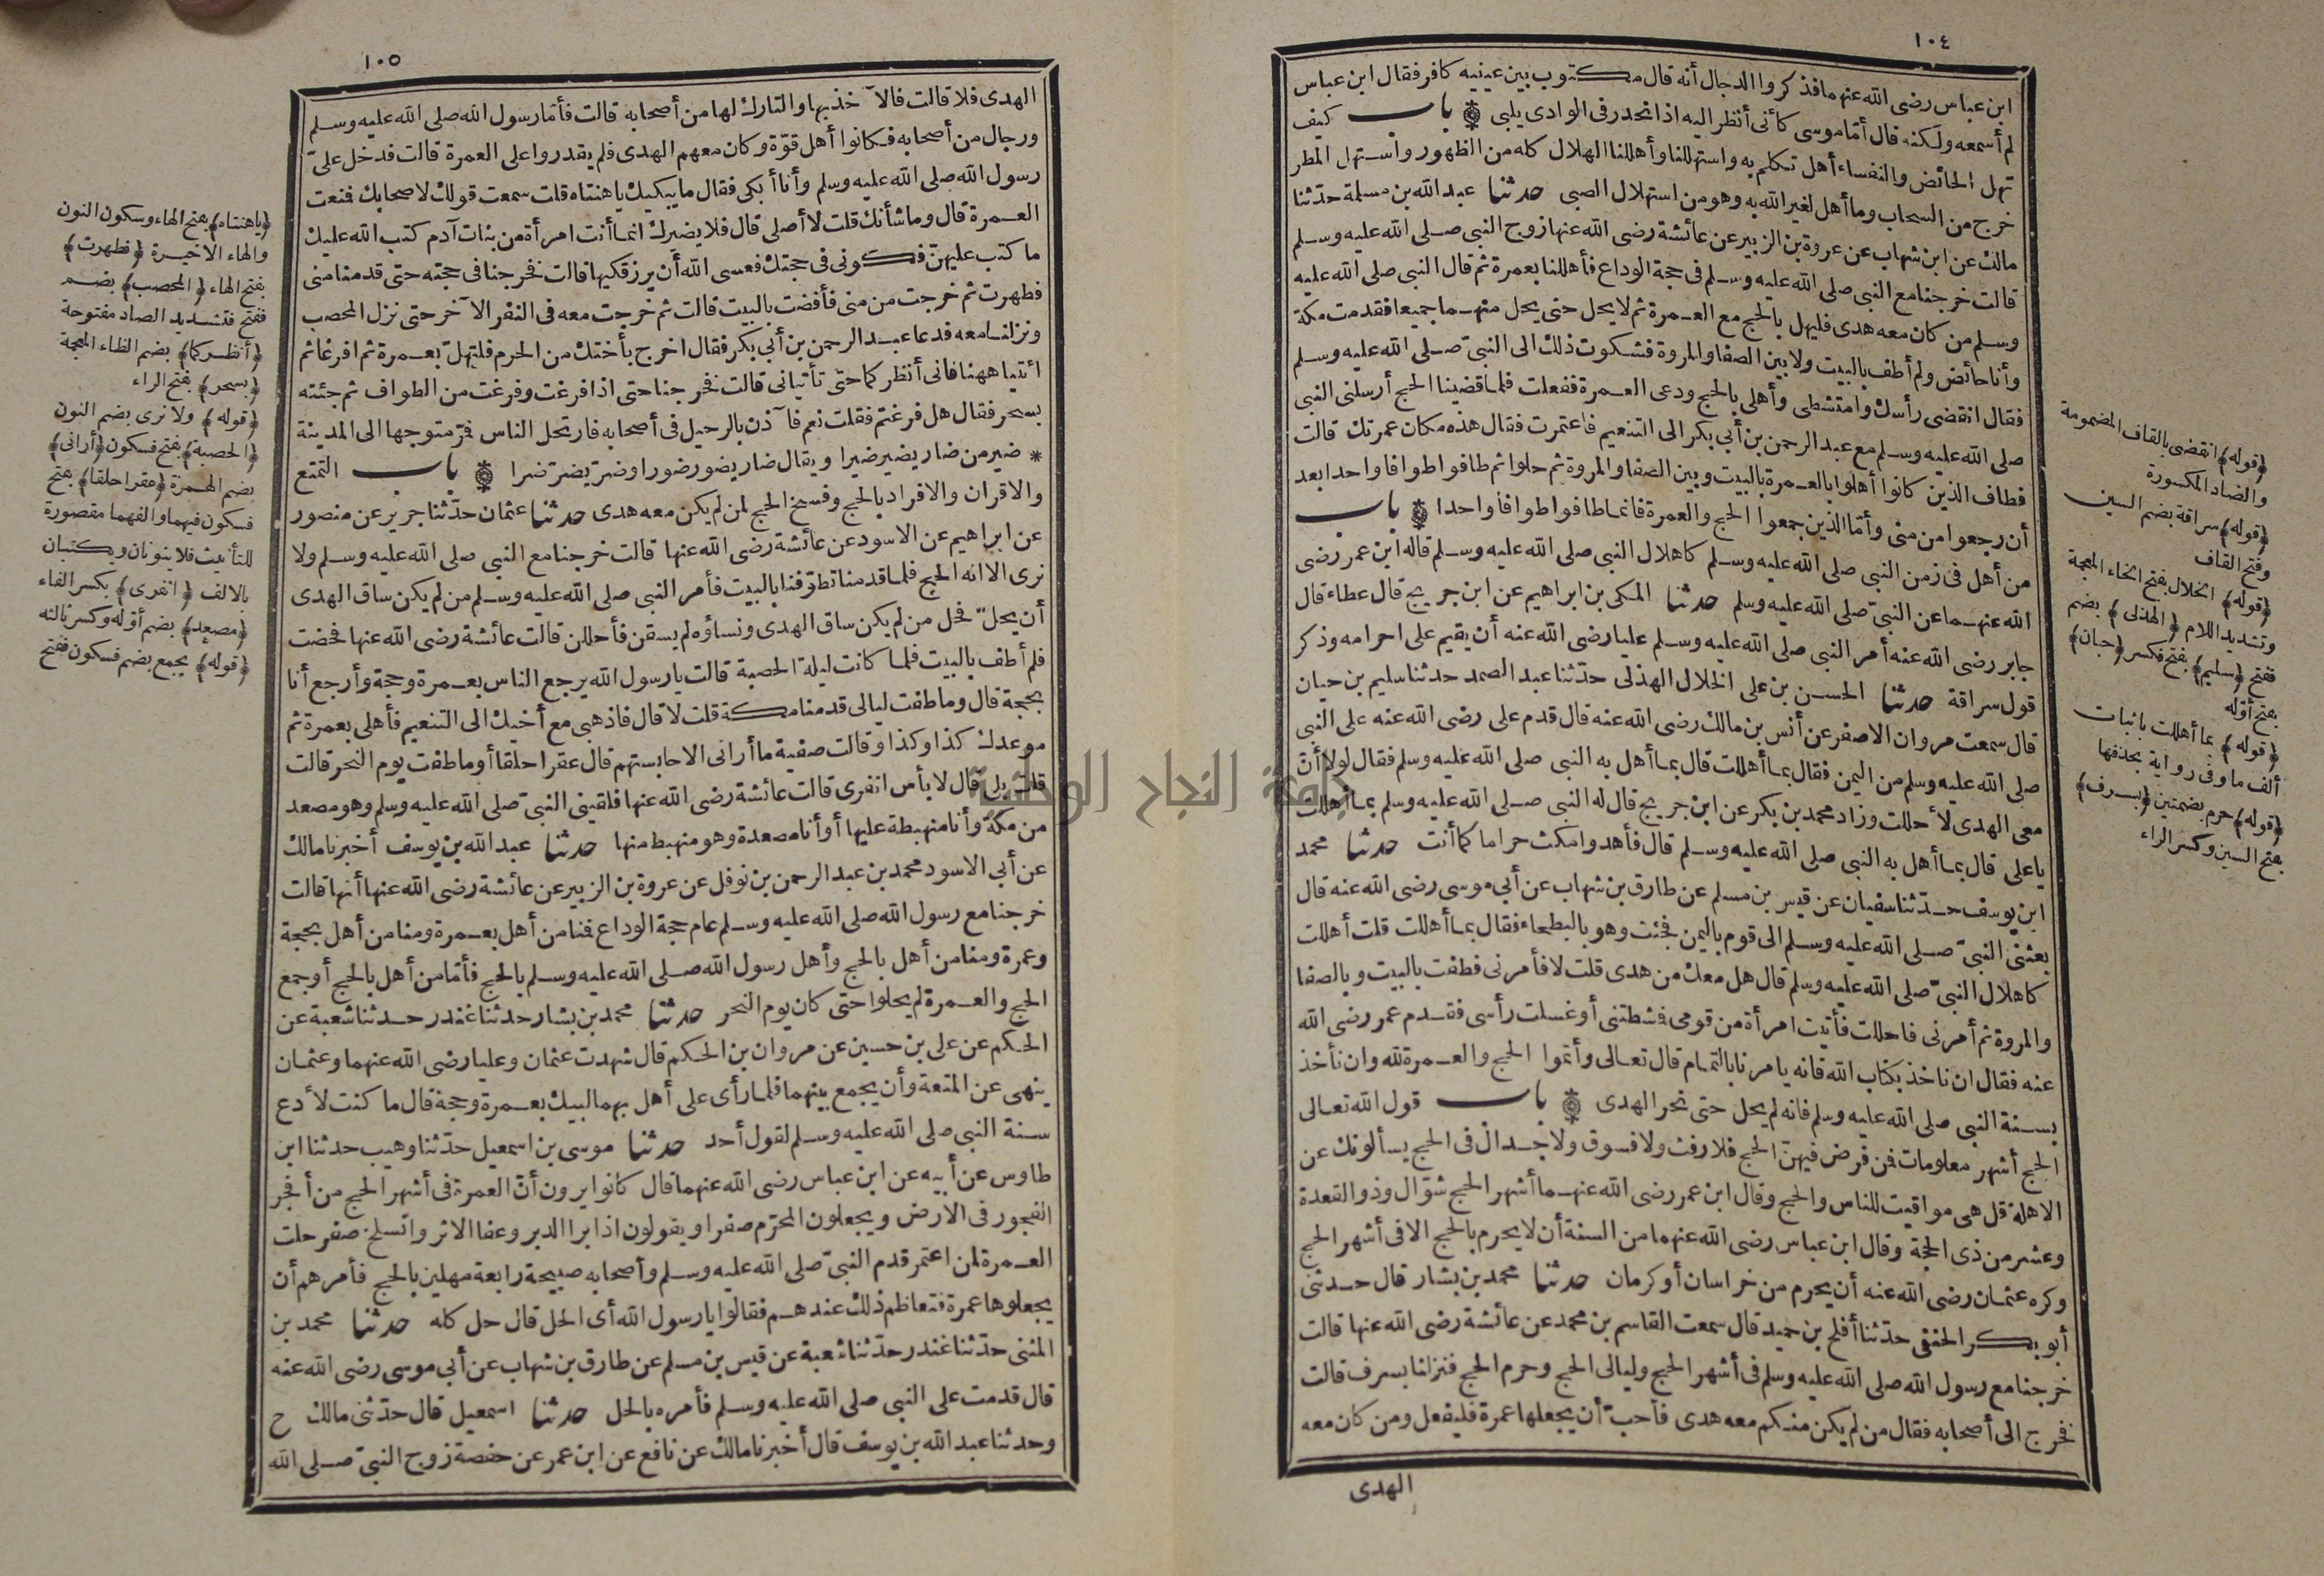 ١٠٤
ابن عباس رضى الله عنهما فذكروا الدجال أنه قال مكتوب بين عينيه كافر فقال ابن عباس
لم أسمعه ولكنه قال أما موسى كأنى أنظر اليه اذا انحدر فى الوادى يلبى باب كيف
تهل الحائض والنفساء أهل تكلم به واستهللنا وأهللنا الهلال كله من الظهور واستهل المطر
خرج من السحاب وما أهل لغير الله به وهو من استهلال الصبى حدثنا عبد الله بن مسلمة حدّثنا
مالك عن ابن شهاب عن عروة بن الزبير عن عائشة رضى الله عنها زوج النبى صلى الله عليه وسلم
قالت خرجنا مع النبى صلى الله عليه وسلم فى حجة الوداع فأهللنا بعمرة ثم قال النبى صلى الله عليه
وسلم من كان معه هدى فليهل بالحج مع العمرة ثم لا يحل حتى يحل منهما جميعا فقدمت مكة
وأنا حائض ولم أطف بالبيت ولا بين الصفا والمروة فشكوت ذلك الى النبىّ صلى الله عليه وسلم
فقال انقضى رأسك وامتشطى وأهلى بالحج ودعى العمرة ففعلت فلما قضينا الحج أرسلنى النبى
صلى الله عليه وسلم مع عبد الرحمن بن أبى بكر الى التنعيم فاعتمرت فقال هذه مكان عمرتك قالت
فطاف الذين كانوا أهلوا بالعمرة بالبيت وبين الصفا والمروة ثم حلوا ثم طافوا طوافا واحدا بعد
أن رجعوا من منى وأمّا الذين جمعوا الحج والعمرة فانما طافوا طوافا واحدا باب
من أهل فى زمن النبى صلى الله عليه وسلم كاهلال النبى صلى الله عليه وسلم قاله ابن عمر رضى
الله عنهما عن النبىّ صلى الله عليه وسلم حدثنا المكى بن ابراهيم عن ابن جريج قال عطاء قال
جابر رضى الله عنه أمر النبى صلى الله عليه وسلم عليا رضى الله عنه أن يقيم على احرامه وذكر
قول سراقة حدثنا الحسن بن على الخلال الهذلى حدّثنا عبد الصمد حدثنا سليم بن حيان
قال سمعت مروان الاصفر عن أنس بن مالك رضى الله عنه قال قدم على رضى الله عنه على النبى
صلى الله عليه وسلم من اليمن فقال بما أهللت قال بما أهل به النبى صلى الله عليه وسلم فقال لولا أنّ
معى الهدى لأحللت وزاد محمد بن بكر عن ابن جريج قال له النبى صلى الله عليه وسلم بما أهللت
يا على قال بما أهل به النبى صلى الله عليه وسلم قال فأهد وامكث حراما كما أنت حدثنا محمد
ابن يوسف حدّثنا سفيان عن قيس بن مسلم عن طارق بن شهاب عن أبى موسى رضى الله عنه قال
بعثنى النبىّ صلى الله عليه وسلم الى قوم باليمن فجئت وهو بالبطحاء فقال بما أهللت قلت أهللت
كاهلال النبىّ صلى الله عليه وسلم قال هل معك من هدى قلت لا فأمرنى فطفت بالبيت وبالصفا
والمروة ثم أمرنى فاحللت فأتيت امرأة من قومى فشطتنى أو غسلت رأسى فقدم عمر رضى الله
عنه فقال ان ناخذ بكتاب الله فانه يامرنا بالتمام قال تعالى وأتموا الحج والعمرة لله وان نأخذ
بسنة النبى صلى الله عليه وسلم فانه لم يحل حتى نحر الهدى باب قول الله تعالى
الحج أشهر معلومات فمن فرض فيهنّ الحج فلا رفث ولا فسوق ولا جدال فى الحج يسألونك عن
الاهلة قل هى مواقيت للناس والحج وقال ابن عمر رضى الله عنهما أشهر الحج شوّال وذو القعدة
وعشر من ذى الحجة وقال ابن عباس رضى الله عنهما من السنة أن لا يحرم بالحج الا فى أشهر الحج
وكره عثمان رضى الله عنه أن يحرم من خراسان أو كرمان حدثنا محمد بن بشار قال حدثنى
أبو بكر الحنفى حدّثنا أفلح بن حميد قال سمعت القاسم بن محمد عن عائشة رضى الله عنها قالت
خرجنا مع رسول الله صلى الله عليه وسلم فى أشهر الحج وليالى الحج وحرم الحج فنزلنا بسرف قالت
فخرج الى أصحابه فقال من لم يكن منكم معه هدى فأحبّ أن يجعلها عمرة فليفعل ومن كان معه
الهدى
﴿قوله﴾ انقضى بالقاف المضمومة
والضاد المكسورة
﴿قوله﴾ سراقة بضم السين
وفتح القاف
﴿قوله﴾ الخلال بفتح الخاء المعجمة
وتشديد اللام ﴿الهذلى﴾ بضم
ففتح ﴿سليم﴾ بفتح فكسر ﴿حيان﴾
بفتح أوّله
﴿قوله﴾ بما أهللت باثبات
ألف ما وفى رواية بحذفها
﴿قوله﴾ حرم بضمتين ﴿بسرف﴾
بفتح السين وكسر الراء
١٠٥
الهدى فلا قالت فالآخذ بها والتارك لها من أصحابه قالت فأمّا رسول الله صلى الله عليه وسلم
ورجال من أصحابه فكانوا أهل قوّة وكان معهم الهدى فلم يقدروا على العمرة قالت فدخل علىّ
رسول الله صلى الله عليه وسلم وأنا أبكى فقال ما يبكيك يا هنتاه قلت سمعت قولك لاصحابك فمنعت
العمرة قال وما شأنك قلت لا أصلى قال فلا يضيرك انما أنت امرأة من بنات آدم كتب الله عليك
ما كتب عليهنّ فكونى فى حجتك فعسى الله أن يرزقكيها قالت فخرجنا فى حجته حتى قدمنا منى
فطهرت ثم خرجت من منى فأفضت بالبيت قالت ثم خرجت معه فى النفر الآخر حتى نزل المحصب
ونزلنا معه فدعا عبد الرحمن بن أبى بكر فقال اخرج بأختك من الحرم فلتهلّ بعمرة ثم افرغا ثم
ائتيا ههنا فانى أنظركما حتى تأتيانى قالت فخرجنا حتى اذا فرغت وفرغت من الطواف ثم جئته
بسحر فقال هل فرغتم فقلت نعم فآذن بالرحيل فى أصحابه فارتحل الناس فمرّ متوجها الى المدينة
* ضير من ضار يضير ضيرا ويقال ضار يضور ضورا وضرّ يضرّ ضرا باب التمتع
والاقران والافراد بالحج وفسخ الحج لمن لم يكن معه هدى حدثنا عثمان حدّثنا جرير عن منصور
عن ابراهيم عن الاسود عن عائشة رضى الله عنها قالت خرجنا مع النبى صلى الله عليه وسلم ولا
نرى الا انه الحج فلما قدمنا تطوّفنا بالبيت فأمر النبى صلى الله عليه وسلم من لم يكن ساق الهدى
أن يحلّ فحل من لم يكن ساق الهدى ونساؤه لم يسقن فأحللن قالت عائشة رضى الله عنها فحضت
فلم أطف بالبيت فلما كانت ليلة الحصبة قالت يا رسول الله يرجع الناس بعمرة وحجة وأرجع أنا
بحجة قال وما طفت ليالى قدمنا مكة قلت لا قال فاذهبى مع أخيك الى التنعيم فأهلى بعمرة ثم
موعدك كذا وكذا وقالت صفية ما أرانى الا حابستهم قال عقرا حلقا أو ما طفت يوم النحر قالت
قلت بلى قال لا بأس انفرى قالت عائشة رضى الله عنها فلقينى النبىّ صلى الله عليه وسلم وهو مصعد
من مكة وأنا منهبطة عليها أو أنا مصعدة وهو منهبط منها حدثنا عبد الله بن يوسف أخبرنا مالك
عن أبى الاسود محمد بن عبد الرحمن بن نوفل عن عروة بن الزبير عن عائشة رضى الله عنها أنها قالت
خرجنا مع رسول الله صلى الله عليه وسلم عام حجة الوداع فمنا من أهل بعمرة ومنا من أهل بحجة
وعمرة ومنا من أهل بالحج وأهل رسول الله صلى الله عليه وسلم بالحج فأمّا من أهل بالحج أو جمع
الحج والعمرة لم يحلوا حتى كان يوم النحر حدثنا محمد بن بشار حدثنا غندر حدثنا شعبة عن
الحكم عن على بن حسين عن مروان بن الحكم قال شهدت عثمان وعليا رضى الله عنهما وعثمان
ينهى عن المتعة وأن يجمع بينهما فلما رأى على أهل بهما لبيك بعمرة وحجة قال ما كنت لأدع
سنة النبى صلى الله عليه وسلم لقول أحد حدثنا موسى بن اسمعيل حدّثنا وهيب حدثنا ابن
طاوس عن أبيه عن ابن عباس رضى الله عنهما قال كانوا يرون أنّ العمرة فى أشهر الحج من أفجر
الفجور فى الارض ويجعلون المحرّم صفرا ويقولون اذا برا الدبر وعفا الاثر وانسلخ صفر حلت
العمرة لمن اعتمر قدم النبىّ صلى الله عليه وسلم وأصحابه صبيحة رابعة مهلين بالحج فأمرهم أن
يجعلوها عمرة فتعاظم ذلك عندهم فقالوا يا رسول الله أى الحل قال حل كله حدثنا محمد بن
المثنى حدّثنا غندر حدّثنا شعبة عن قيس بن مسلم عن طارق بن شهاب عن أبى موسى رضى الله عنه
قال قدمت على النبى صلى الله عليه وسلم فأمره بالحل حدثنا اسمعيل قال حدّثنى مالك ح
وحدثنا عبد الله بن يوسف قال أخبرنا مالك عن نافع عن ابن عمر عن حفصة زوج النبىّ صلى الله
﴿يا هنتاه﴾ بفتح الهاء وسكون النون
والهاء الاخيرة ﴿فطهرت﴾
بفتح الهاء ﴿المحصب﴾ بضم
ففتح فتشديد الصاد مفتوحة
﴿أنظركما﴾ بضم الظاء المعجمة
﴿بسحر﴾ بفتح الراء
﴿قوله﴾ ولا نرى بضم النون
﴿الحصبة﴾ بفتح فسكون ﴿أرانى﴾
بضم الهمزة ﴿عقرا حلقا﴾ بفتح
فسكون فيهما وألفهما مقصورة
للتأنيث فلا ينونان ويكتبان
بالالف ﴿انفرى﴾ بكسر الفاء
﴿مصعد﴾ بضم أوّله وكسر ثالثه
﴿قوله﴾ يجمع بضم فسكون ففتح
جامعة النجاح الوطنية